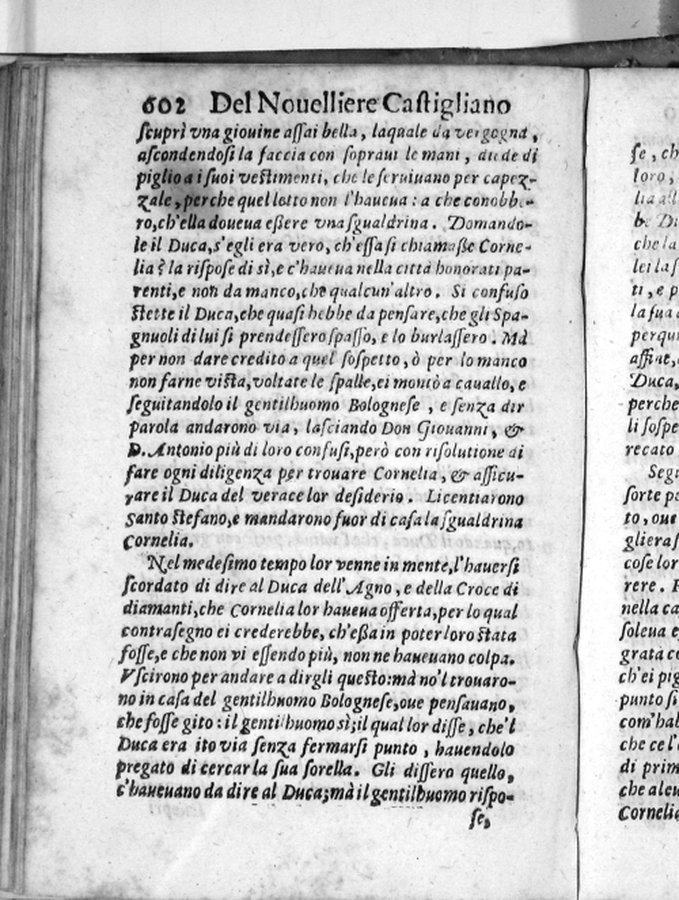 602 Del Nouelliere Castigliano
ſcuprì vna giouine aſſai bella, laquale da vergogna,
aſcondendoſi la faccia con ſopraui le mani, diede di
piglio a i ſuoi veſtimenti, che le ſeruiuano per capez-
zale, perche quel letto non l'haueua: a che conobbe-
ro, ch'ella doueua eßere vna sgualdrina. Domando-
le il Duca, s'egli era vero, ch'eſſa ſi chiamaße Corne-
lia? la riſpoſe di sì, e c'haueua nella città honorati pa-
renti, e non da manco, che qualcun'altro. Si confuſo
ſtette il Duca, che quaſi hebbe da penſare, che gli Spa-
gnuoli di lui ſi prendeſſero ſpaſſo, e lo burlaſſero. Mà
per non dare credito a quel ſoſpetto, ò per lo manco
non farne viſta, voltate le ſpalle, ei montò a cauallo, e
ſeguitandolo il gentilhuomo Bologneſe, e ſenza dir
parola andarono via, laſciando Don Giouanni, &
D. Antonio più di loro confuſi, però con riſolutione di
fare ogni diligenza per trouare Cornelia, & aſſicu-
rare il Duca del verace lor deſiderio. Licentiarono
Santo Stefano, e mandarono fuor di caſa la sgualdrina
Cornelia.
Nel medeſimo tempo lor venne in mente, l'hauerſi
ſcordato di dire al Duca dell'Agno, e della Croce di
diamanti, che Cornelia lor haueua offerta, per lo qual
contraſegno ei crederebbe, ch'eßa in poter loro ſtata
foſſe, e che non vi eſſendo più, non ne haueuano colpa.
Vſcirono per andare a dirgli queſto: mà no'l trouaro-
no in caſa del gentilhuomo Bologneſe, oue penſauano,
che foſſe gito: il gentilhuomo sì; il qual lor diſſe, che'l
Duca era ito via ſenza fermarſi punto, hauendolo
pregato di cercar la ſua ſorella. Gli diſſero quello,
c'haueuano da dire al Duca; mà il gentilhuomo riſpo-
ſe,
ſe, ch
loro,
lia
Di
che la
lei la ſ
ti, e p
la ſua
perqu
Duca,
perche
li ſoſpe
recato
Segu
ſorte p
to, oue
gliera ſ
coſe lor
rere.
nella ca
ſoleua e
grata c
ch'ei pig
punto ſi
com'hab
che ce l'
di prim
che alcu
Cornelia